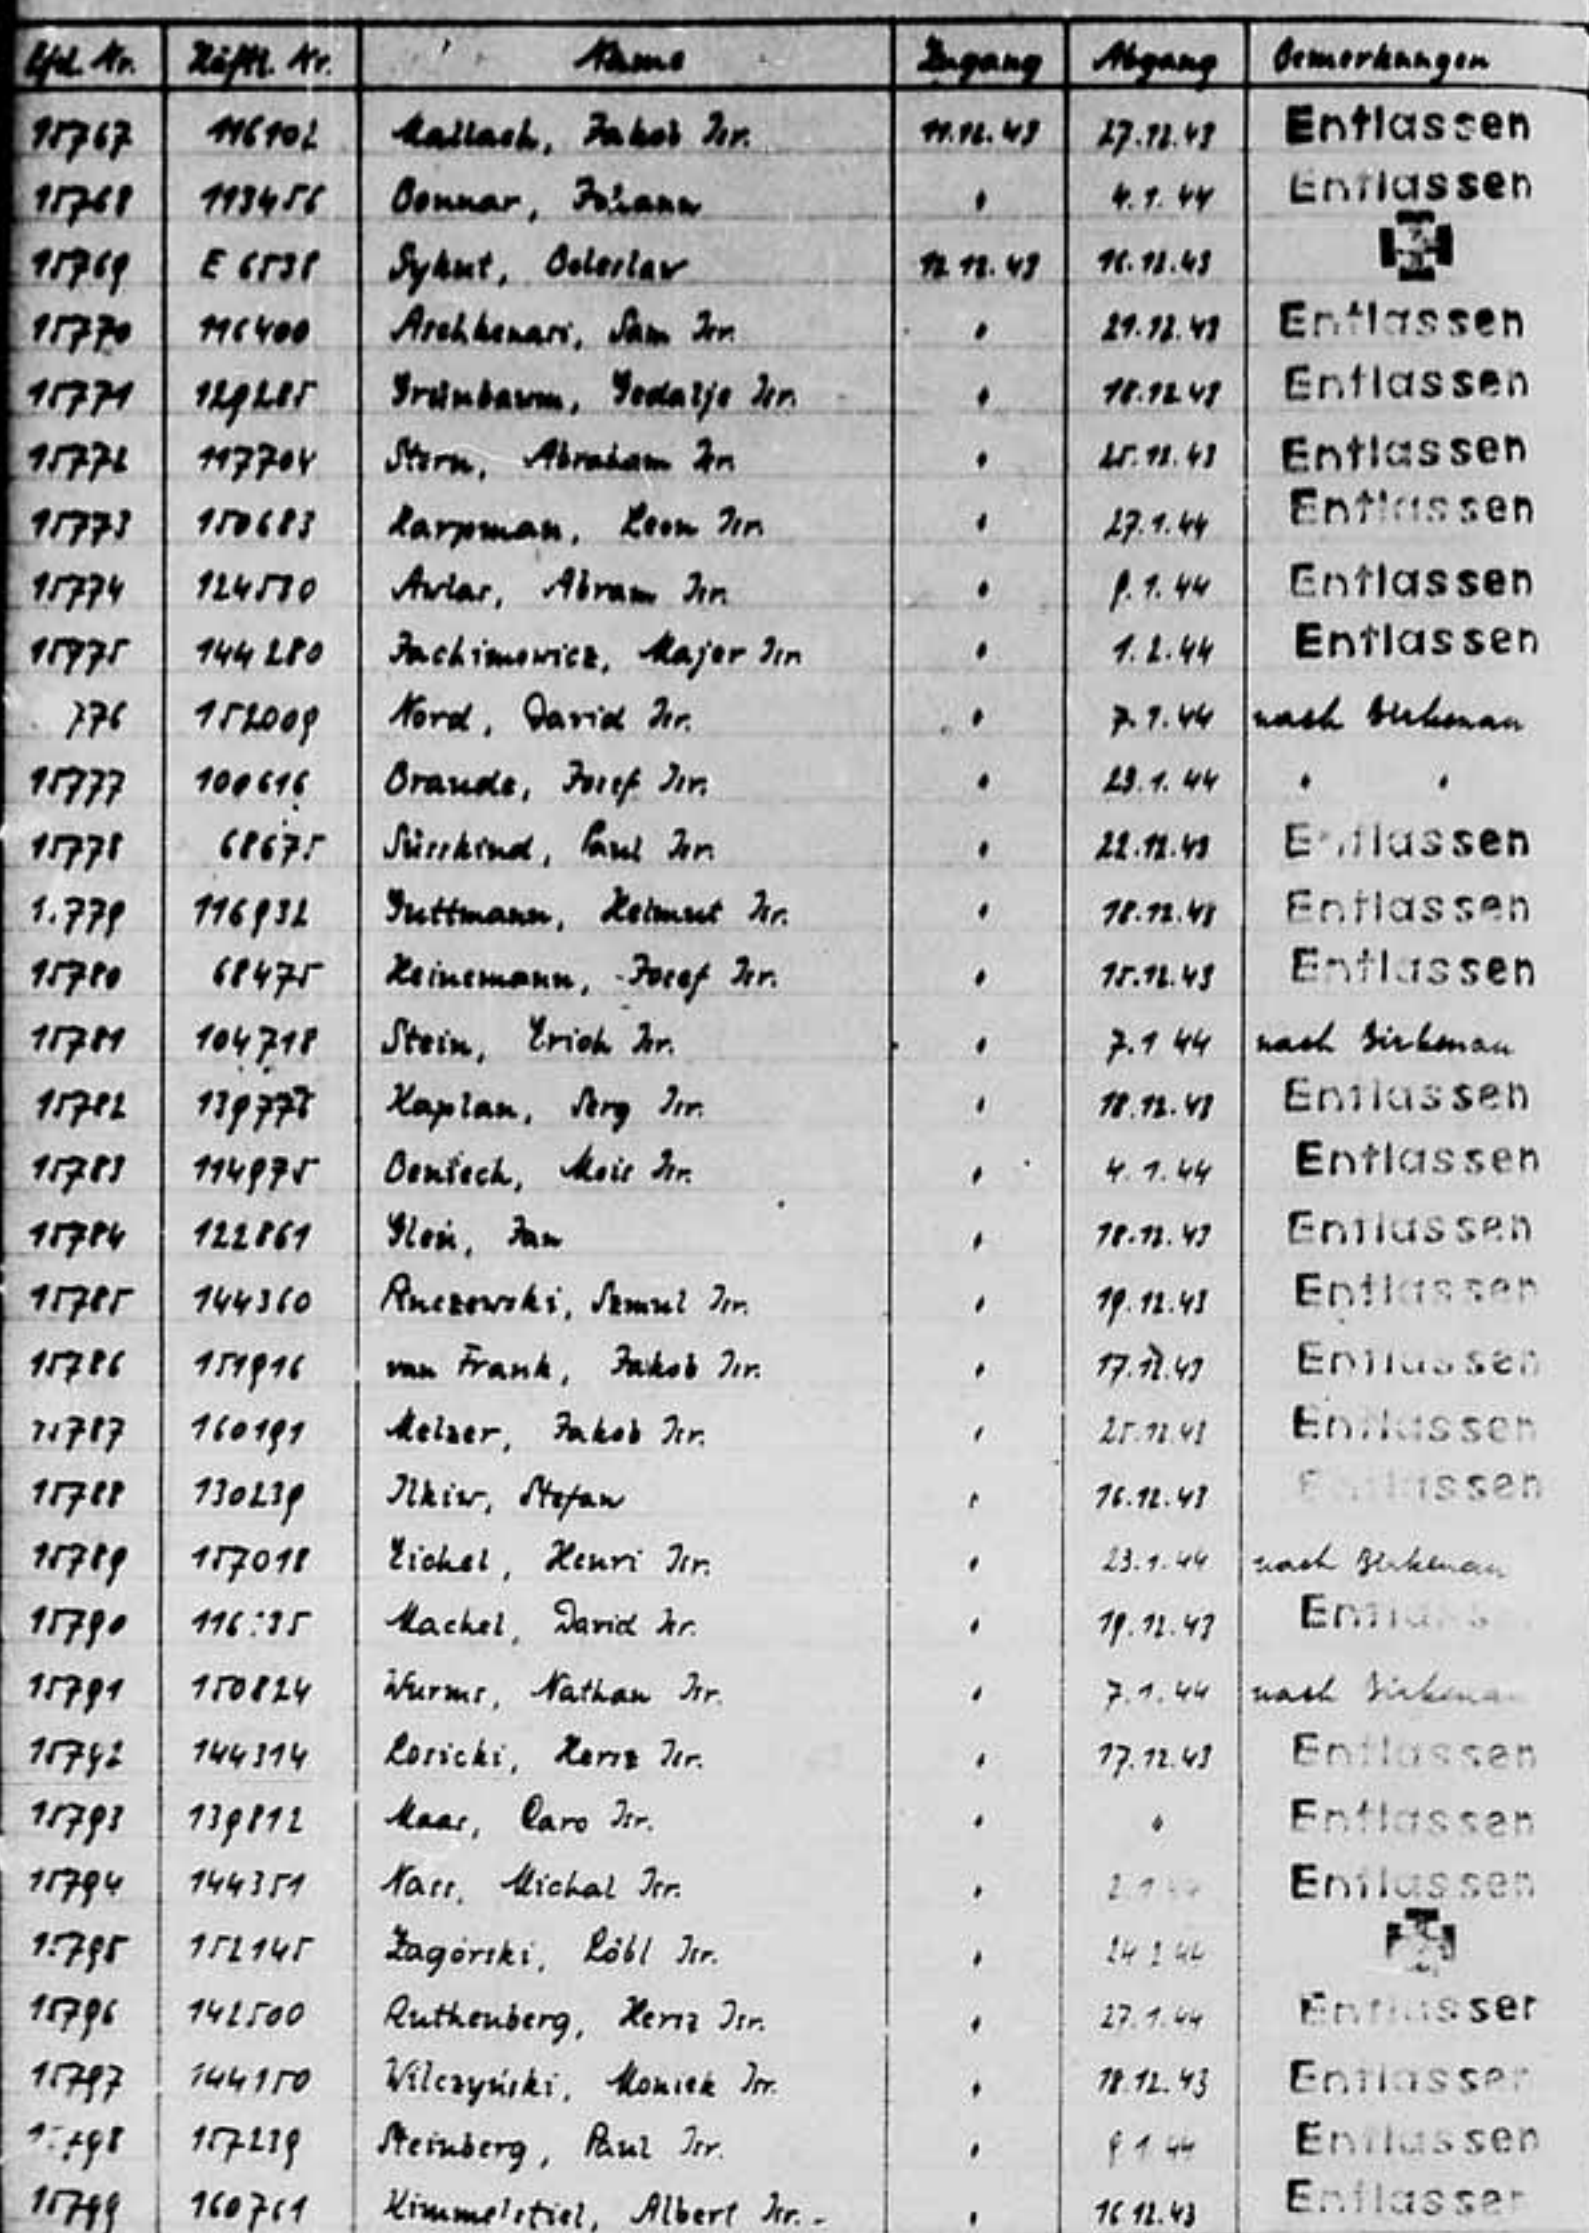 Lfd. Nr. Häftl. Nr. Name Zugang Abgang Bemerkungen
15767 116102 Mallach, Jakob Isr. 11.12.43 27.12.43 Entlassen
15768 113456 Bonnar, Johann " 4.1.44 Entlassen
15769 E 6538 Sykut, Boleslav 12.12.43 16.12.43
15770 116400 Aschkenari, Sam Isr. " 21.12.43 Entlassen
15771 129285 Grünbaum, Gedalje Isr. " 18.12.43 Entlassen
15772 117704 Stern, Abraham Isr. " 25.12.43 Entlassen
15773 150683 Karpman, Leon Isr. " 27.1.44 Entlassen
15774 124530 Avlas, Abram Isr. " 9.1.44 Entlassen
15775 144280 Jachimowicz, Majer Isr. " 1.2.44 Entlassen
776 152009 Nord, David Isr. " 7.1.44 nach Birkenau
15777 100616 Braude, Josef Isr. " 23.1.44 " "
15778 68675 Süsskind, Paul Isr. " 22.12.43 Entlassen
1.779 116932 Guttmann, Helmut Isr. " 18.12.43 Entlassen
15780 68475 Heinemann, Josef Isr. " 15.12.43 Entlassen
15781 104718 Stein, Erich Isr. " 7.1 44 nach Birkenau
15782 Kaplan, Serg Isr. " 18.12.43 Entlassen
15783 114975 Bentech, Mois Isr. " 4.1.44 Entlassen
15784 122861 Gloń, Jan " 18.12.43 Entlassen
15785 144360 Ruczewski, Szmul Isr. " 19.12.43 Entlassen
15786 151916 van Frank, Jakob Isr. " 17.12.43 Entlassen
15787 160191 Melzer, Jakob Isr. " 25.12.43 Entlassen
15788 130239 Ilkiw, Stefan " 16.12.43 Entlassen
15789 157018 Eichel, Henri Isr. " 23.1.44 nach Birkenau
15790 Machel, David Isr. " 19.12.43 Entlassen
15791 150824 Wurms, Nathan Isr. " 7.1.44 nach Birkenau
15792 144314 Losicki, Hersz Isr. " 17.12.43 Entlassen
15793 139812 Maas, Caro Isr. " " Entlassen
15794 144351 Nass, Michal Isr. " Entlassen
15795 152145 Zagórski, Löbl Isr. " 24 2 44
15796 142500 Ruthenberg, Hersz Isr. " 27.1.44 Entlassen
15797 144150 Wilczyński, Moniek Isr. " 18.12.43 Entlassen
157239 Steinberg, Paul Isr. " 9 1 44 Entlassen
15799 160761 Himmelstiel, Albert Isr. " 16 12.43 Entlassen